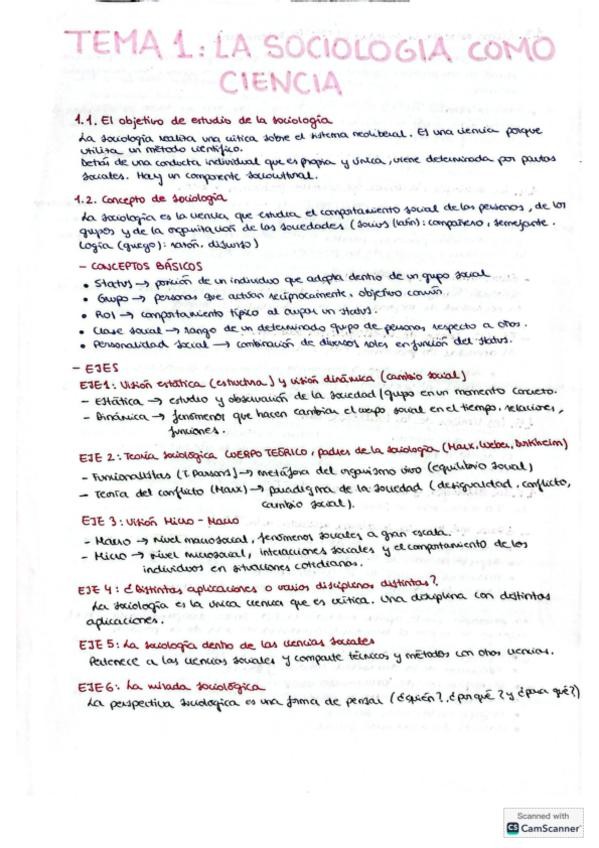 TEMA 1: LA SOCIOLOGIA COMO
CIENCIA
1.1. El objetivo de estudio de la sociología
La sociología realiza una crítica sobre el sistema neoliberal. Es una ciencia porque
utiliza un método científico.
Detrás de una conducta individual que es propia y única, viene determinada por pautas
sociales. Hay un componente sociocultural.
1.2. Concepto de sociología
La sociología es la ciencia que estudia el comportamiento social de las personas, de los
grupos y de la organización de las sociedades (socius (latín): compañero, semejante.
Logia (griego): razón, discurso)
- CONCEPTOS BÁSICOS
• Status → posición de un individuo que adopta dentro de un grupo social
• Grupo → personas que actúan recíprocamente, objetivo común.
• Rol → comportamiento típico al ocupar un status.
• Clase social → rango de un determinado grupo de personas respecto a otros.
• Personalidad social → combinación de diversos roles en función del status.
- EJES
EJE 1: Visión estática (estructura) y visión dinámica (cambio social)
- Estática → estudio y observación de la sociedad/grupo en un momento concreto.
- Dinámica → fenómenos que hacen cambiar el cuerpo social en el tiempo, relaciones,
funciones.
EJE 2: Teoría sociológica CUERPO TEÓRICO, padres de la sociología (Marx, Weber, Durkheim)
- Funcionalistas (T. Parsons) → metáfora del organismo vivo (equilibrio social)
- Teoría del conflicto (Marx) → paradigma de la sociedad (desigualdad, conflicto,
cambio social).
EJE 3: Visión Micro - Macro
- Macro → Nivel macrosocial, fenómenos sociales a gran escala.
- Micro → Nivel microsocial, interacciones sociales y el comportamiento de los
individuos en situaciones cotidianas.
EJE 4: ¿Distintas aplicaciones o varias disciplinas distintas?
La sociología es la única ciencia que es crítica. Una disciplina con distintas
aplicaciones.
EJE 5: La sociología dentro de las ciencias sociales
Pertenece a las ciencias sociales y comparte técnicas y métodos con otras ciencias.
EJE 6: La mirada sociológica
La perspectiva sociológica es una forma de pensar (¿quién?, ¿por qué? y ¿para qué?)
Scanned with
CS CamScanner